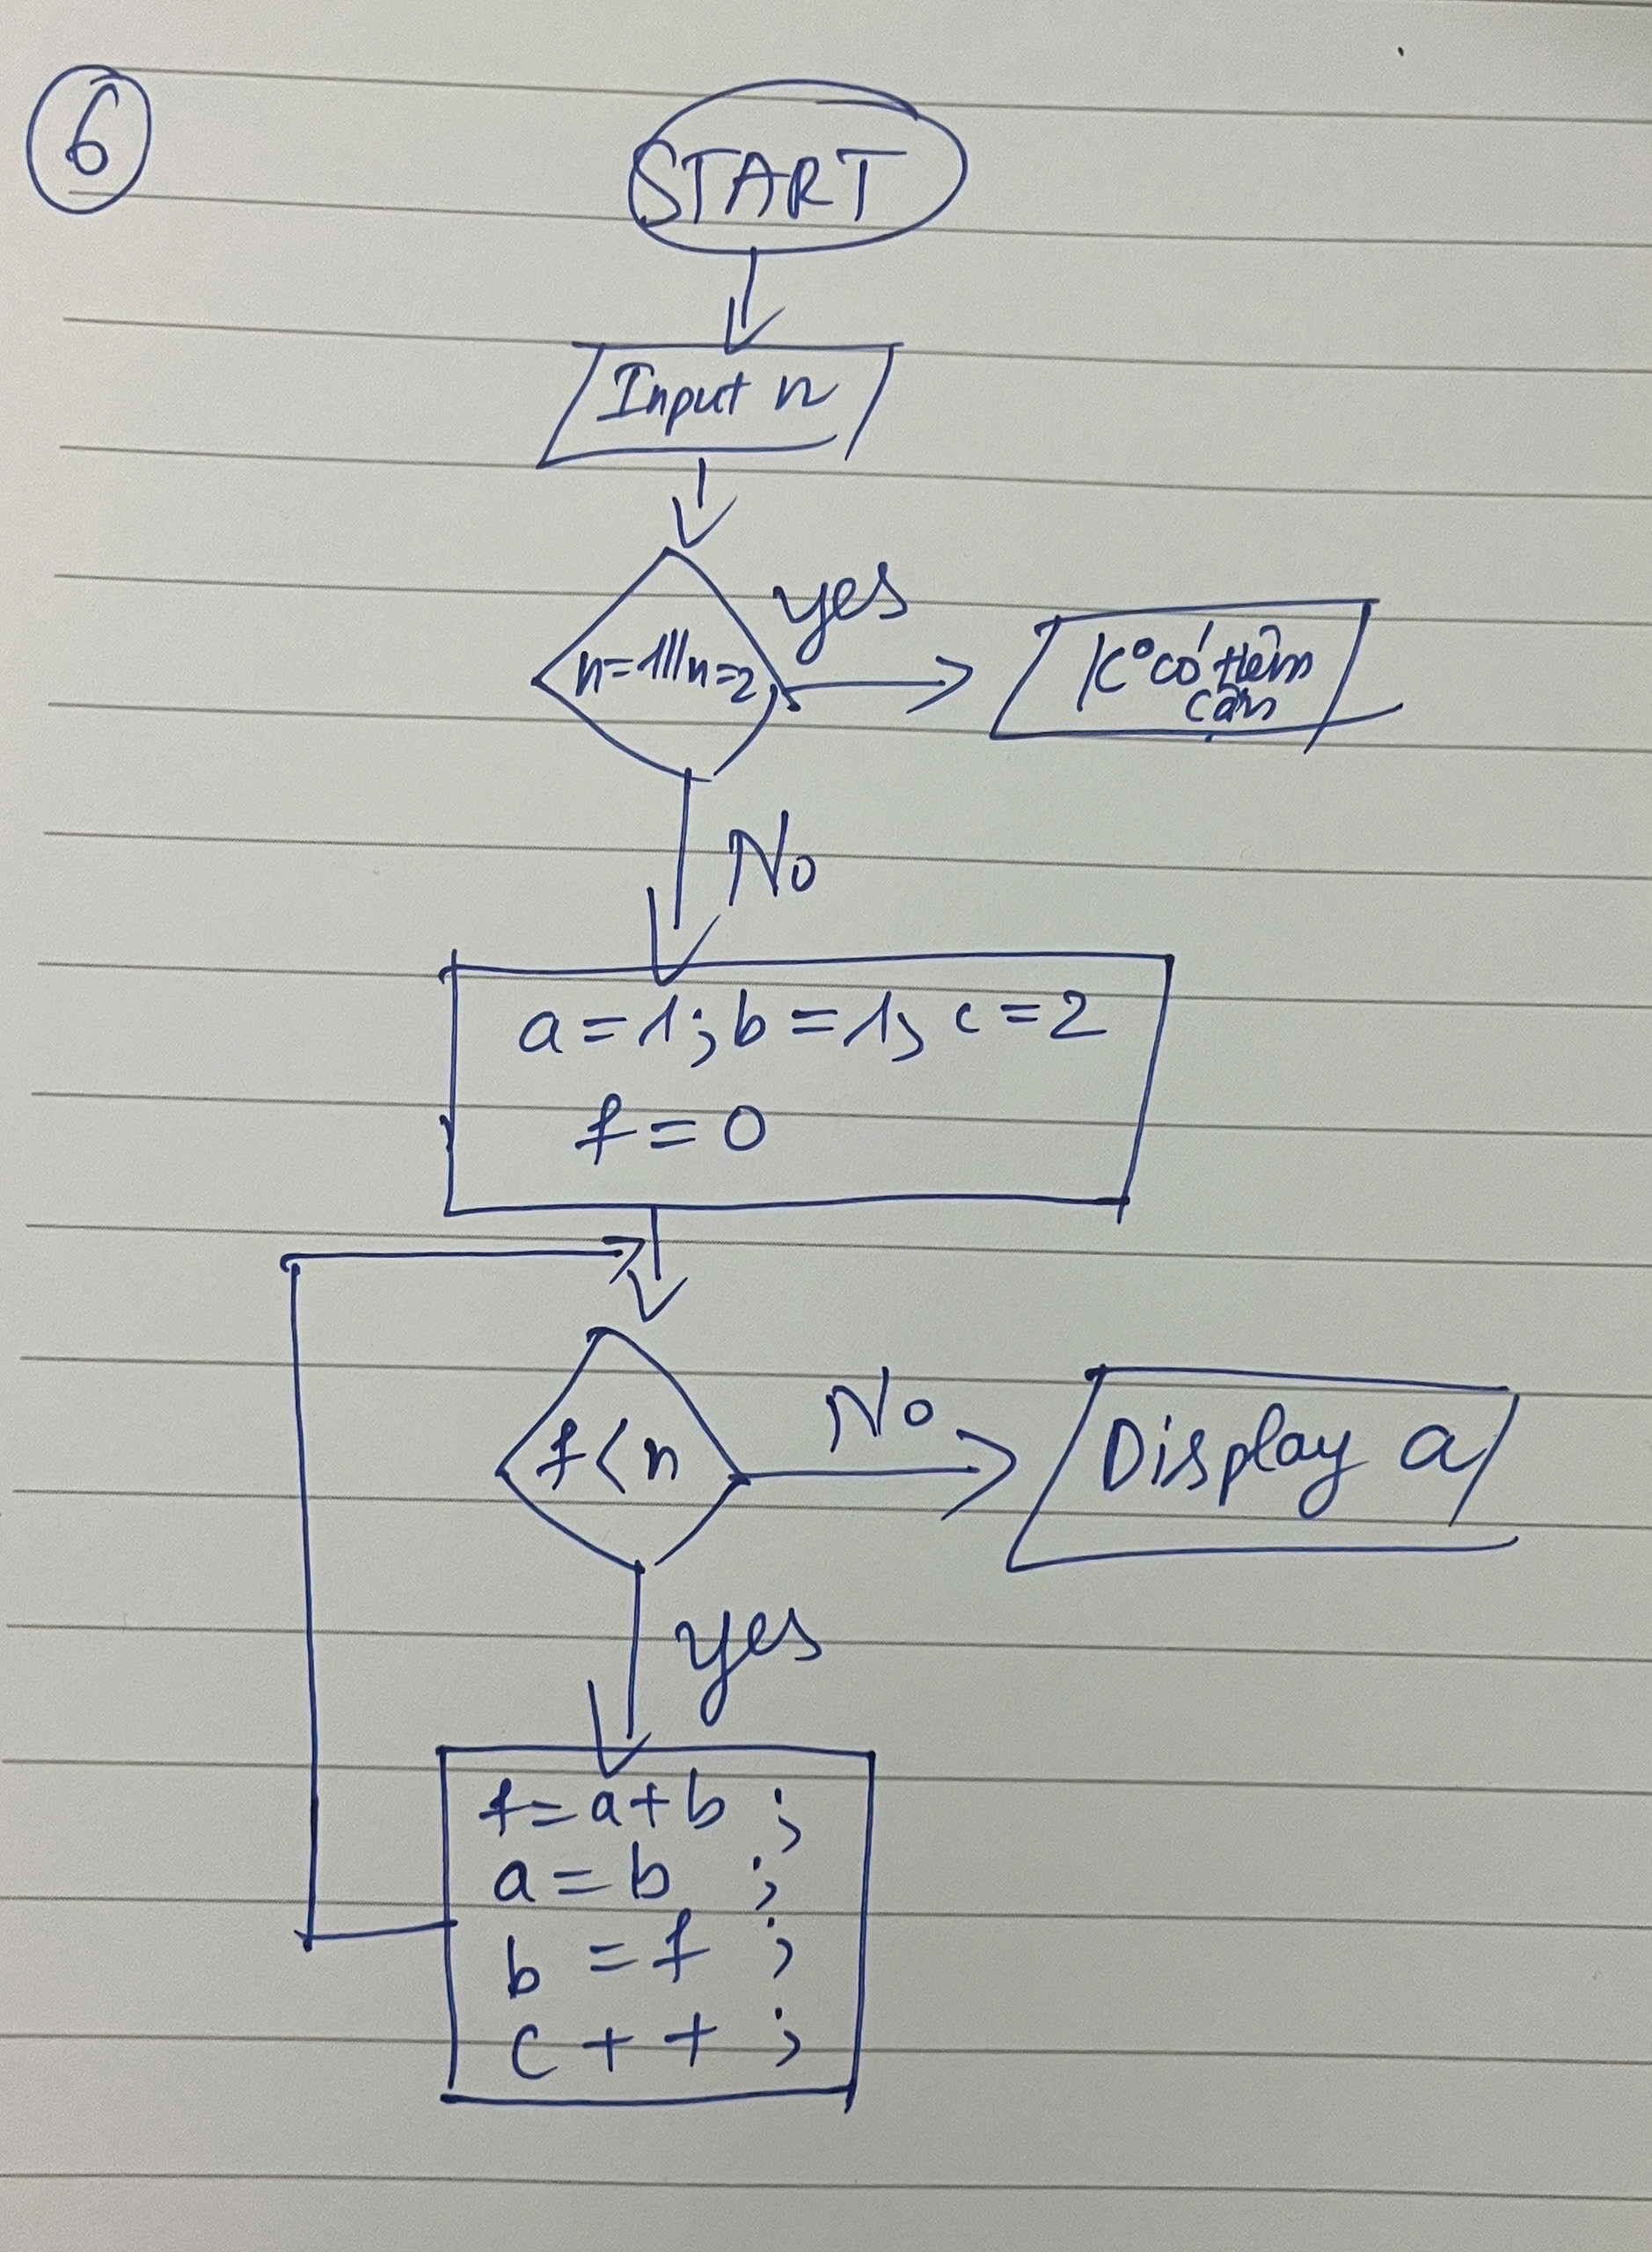 6
START
Input n
n=1||n=2
yes
K° có tiệm
cận
No
a=1; b=1; c=2
f=0
f<n
No
Display a
yes
f=a+b ;
a=b ;
b=f ;
c++ ;